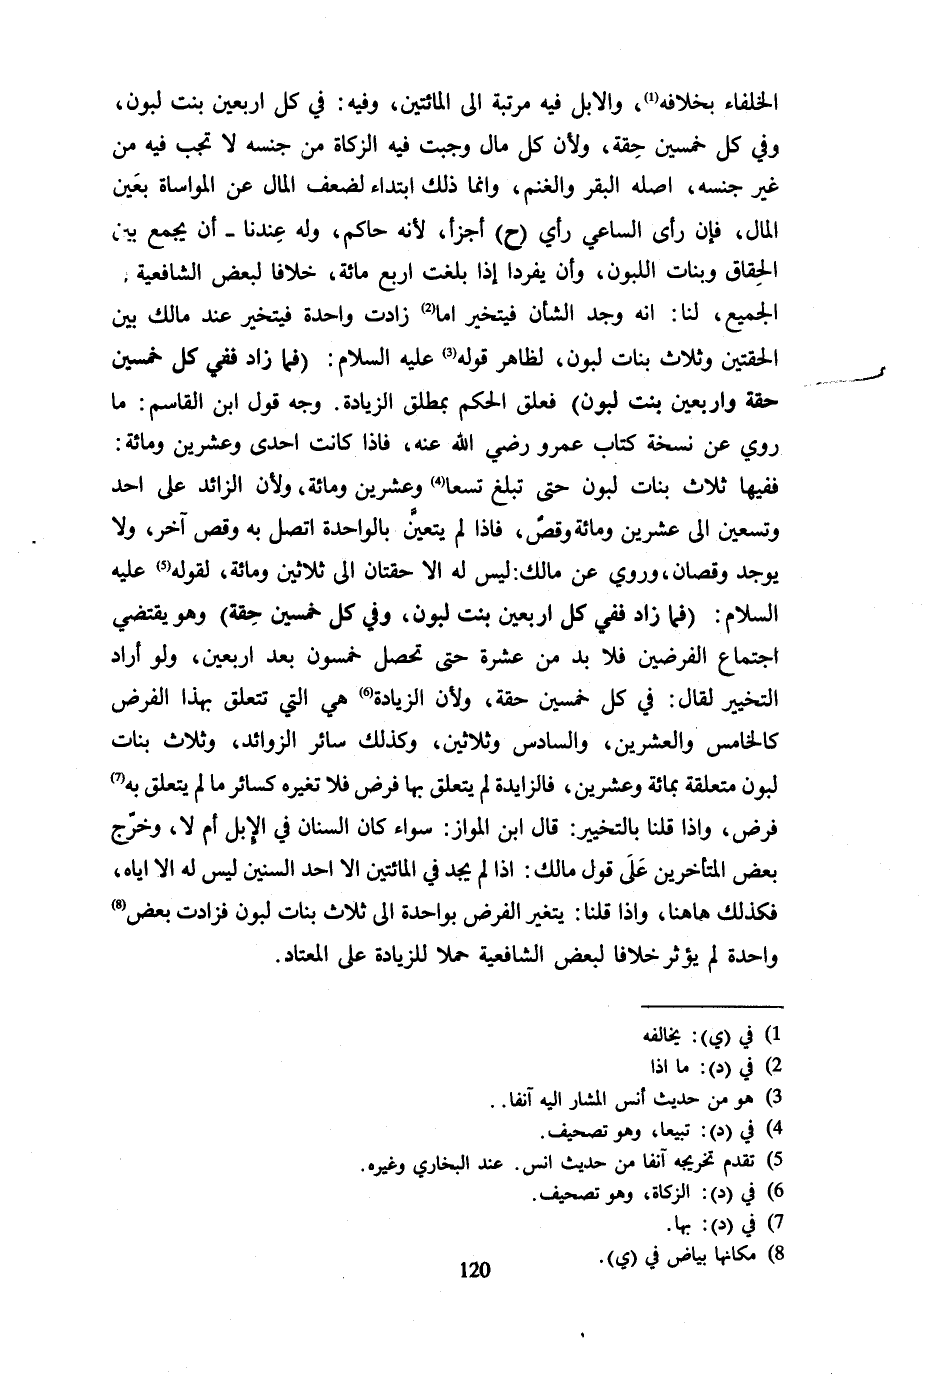 الخلفاء بخلافه(1)، والابل فيه مرتبة الى المائتين، وفيه: في كل اربعين بنت لبون،
وفي كل خمسين حِقة، ولأن كل مال وجبت فيه الزكاة من جنسه لا تجب فيه من
غير جنسه، اصله البقر والغنم، وانما ذلك ابتداء لضعف المال عن المواساة بعَين
المال، فإن رأى الساعي رأي (ح) أجزأ، لأنه حاكم، وله عِندنا ـ أن يجمع بين
الحِقاق وبنات اللبون، وأن يفردا إذا بلغت اربع مائة، خلافا لبعض الشافعية ;
الجميع، لنا: انه وجد الشأن فيتخير اما(2) زادت واحدة فيتخير عند مالك بين
الحقتين وثلاث بنات لبون، لظاهر قوله(3) عليه السلام: (فما زاد ففي كل خمسين
حقة واربعين بنت لبون) فعلق الحكم بمطلق الزيادة. وجه قول ابن القاسم: ما
روي عن نسخة كتاب عمرو رضي الله عنه، فاذا كانت احدى وعشرين ومائة:
ففيها ثلاث بنات لبون حتى تبلغ تسعا(4) وعشرين ومائة، ولأن الزائد على احد
وتسعين الى عشرين ومائة وقصٌ، فاذا لم يتعينَّ بالواحدة اتصل به وقص آخر، ولا
يوجد وقصان، وروي عن مالك: ليس له الا حقتان الى ثلاثين ومائة، لقوله(5) عليه
السلام: (فما زاد ففي كل اربعين بنت لبون، وفي كل خمسين حِقة) وهو يقتضي
اجتماع الفرضين فلا بد من عشرة حتى تحصل خمسون بعد اربعين، ولو أراد
التخيير لقال: في كل خمسين حقة، ولأن الزيادة(6) هي التي تتعلق بهذا الفرض
كالخامس والعشرين، والسادس وثلاثين، وكذلك سائر الزوائد، وثلاث بنات
لبون متعلقة بمائة وعشرين، فالزايدة لم يتعلق بها فرض فلا تغيره كسائر ما لم يتعلق به(7)
فرض، واذا قلنا بالتخيير: قال ابن المواز: سواء كان السنان في الإبل أم لا، وخرّج
بعض المتأخرين عَلَى قول مالك: اذا لم يجد في المائتين الا احد السنين ليس له الا اياه،
فكذلك هاهنا، واذا قلنا: يتغير الفرض بواحدة الى ثلاث بنات لبون فزادت بعض(8)
واحدة لم يؤثر خلافا لبعض الشافعية حملا للزيادة على المعتاد.
1) في (ي): يخالفه
2) في (د): ما اذا
3) هو من حديث أنس المشار اليه آنفا..
4) في (د): تبيعا، وهو تصحيف.
5) تقدم تخريجه آنفا من حديث انس. عند البخاري وغيره.
6) في (د): الزكاة، وهو تصحيف.
7) في (د): بها.
8) مكانها بياض في (ي).
120